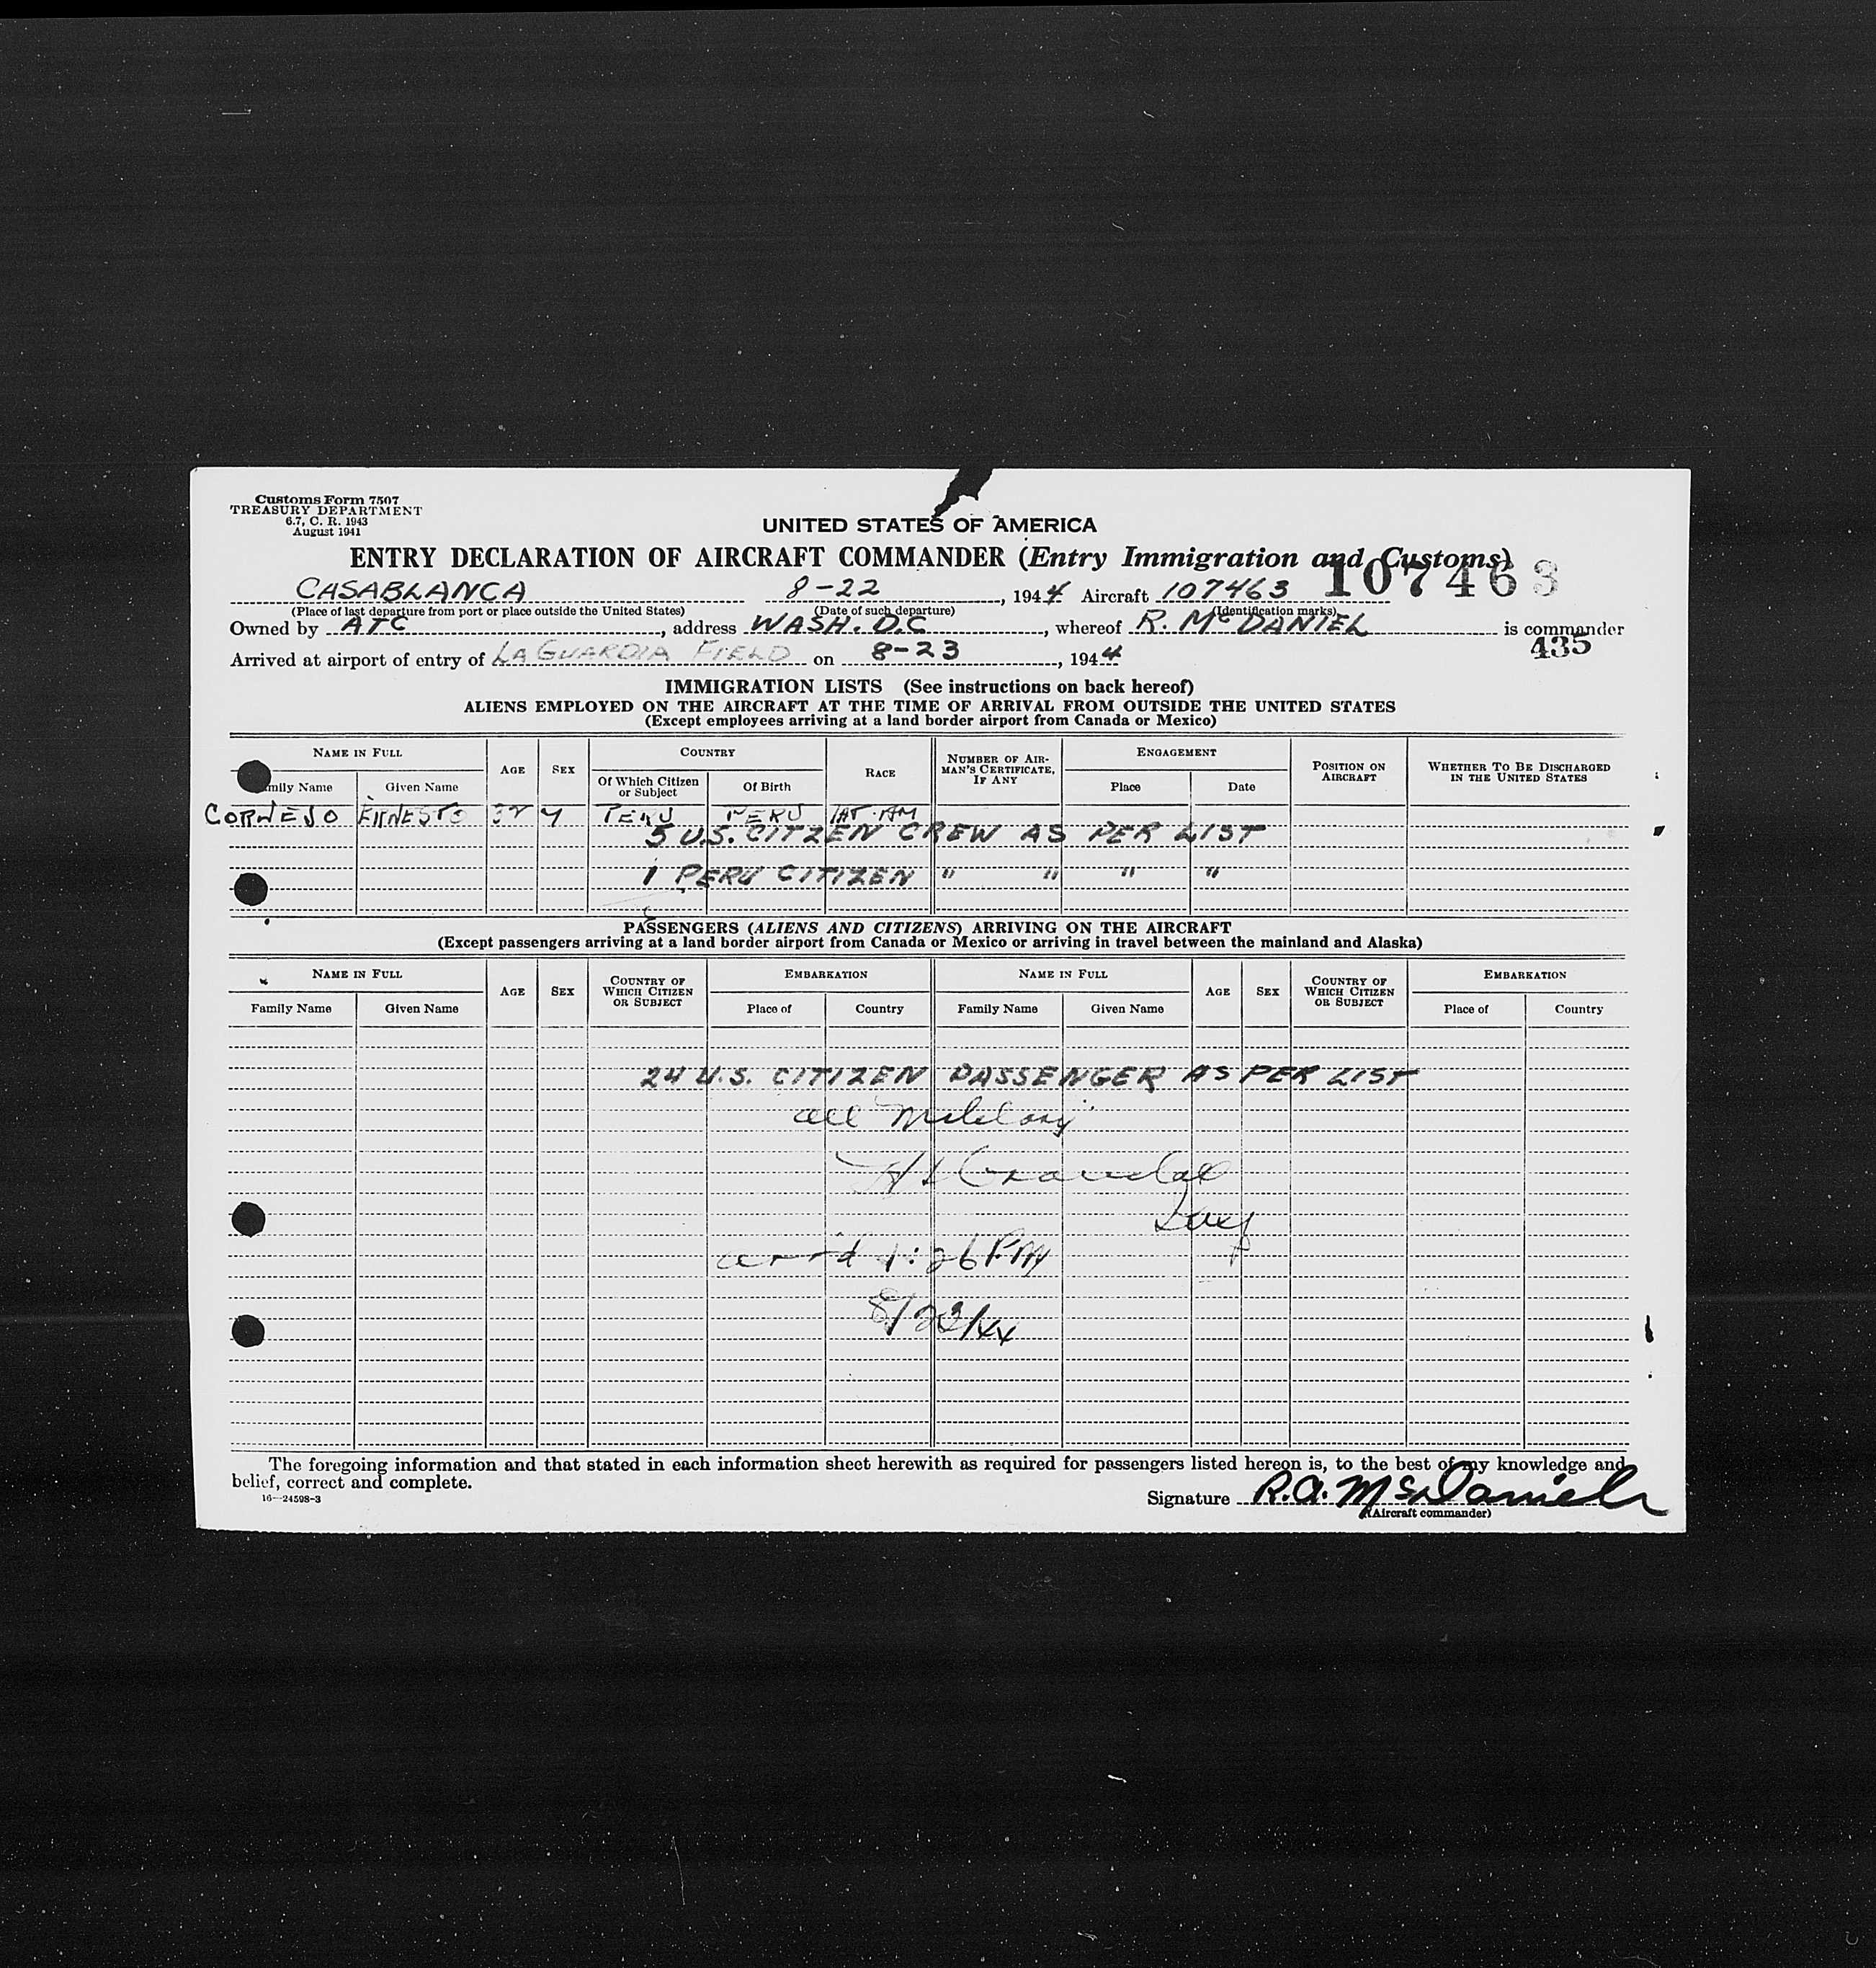 Customs Form 7507
TREASURY DEPARTMENT
6.7, C. R. 1943
August 1941
UNITED STATES OF AMERICA
ENTRY DECLARATION OF AIRCRAFT COMMANDER (Entry Immigration and Customs)
107463
CASABLANCA 8-22, 1944 Aircraft 107463
(Place of last departure from port or place outside the United States) (Date of such departure) (Identification marks)
Owned by ATC, address WASH. D.C, whereof R. McDANIEL is commander
435
Arrived at airport of entry of LA GUARDIA FIELD on 8-23, 1944
IMMIGRATION LISTS (See instructions on back hereof)
ALIENS EMPLOYED ON THE AIRCRAFT AT THE TIME OF ARRIVAL FROM OUTSIDE THE UNITED STATES
(Except employees arriving at a land border airport from Canada or Mexico)
NAME IN FULL AGE SEX COUNTRY RACE NUMBER OF AIRMAN'S CERTIFICATE, IF ANY ENGAGEMENT POSITION ON AIRCRAFT WHETHER TO BE DISCHARGED IN THE UNITED STATES
mily Name Given Name Of Which Citizen or Subject Of Birth Place Date
CORNEJO ERNESTO 32 M PERU PERU LAT. AM
5 U.S. CITZEN CREW AS PER LIST
1 PERU CITIZEN " " " "
PASSENGERS (ALIENS AND CITIZENS) ARRIVING ON THE AIRCRAFT
(Except passengers arriving at a land border airport from Canada or Mexico or arriving in travel between the mainland and Alaska)
NAME IN FULL AGE SEX COUNTRY OF WHICH CITIZEN OR SUBJECT EMBARKATION NAME IN FULL AGE SEX COUNTRY OF WHICH CITIZEN OR SUBJECT EMBARKATION
Family Name Given Name Place of Country Family Name Given Name Place of Country
24 U.S. CITIZEN PASSENGER AS PER LIST
all "Military"
Crandal
arr'd 1:26 PM
8/23/44
The foregoing information and that stated in each information sheet herewith as required for passengers listed hereon is, to the best of my knowledge and
belief, correct and complete.
16—24598-3
Signature R.A. McDaniels
(Aircraft commander)